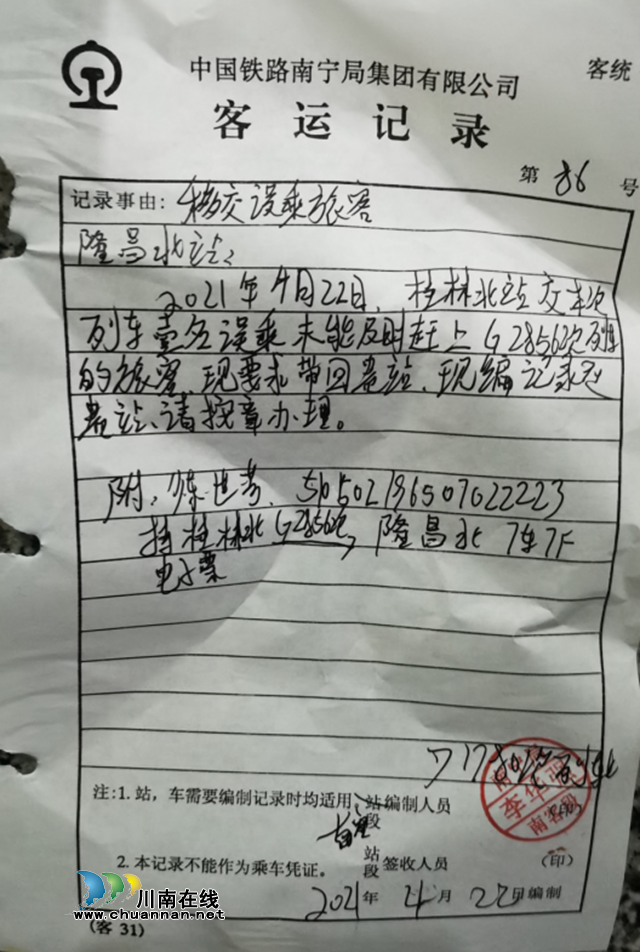 中国铁路南宁局集团有限公司
客统
客运记录
第 86 号
记录事由: 移交误乘旅客
隆昌北站:
2021年4月22日, 桂林北站交本次
列车壹名误乘未能及时赶上G2856次列车
的旅客, 现要求带回贵站, 现编记录交
贵站, 请按章办理。
附: 世 510502196507022223
持桂林北G2856次 隆昌北 7车7F
电子票
注:1. 站,车需要编制记录时均适用
站段 编制人员
李华
南客
2. 本记录不能作为乘车凭证。
站段 签收人员
(印)
2021年 4月 22日编制
川南在线
www.chuannan.net
(客 31)